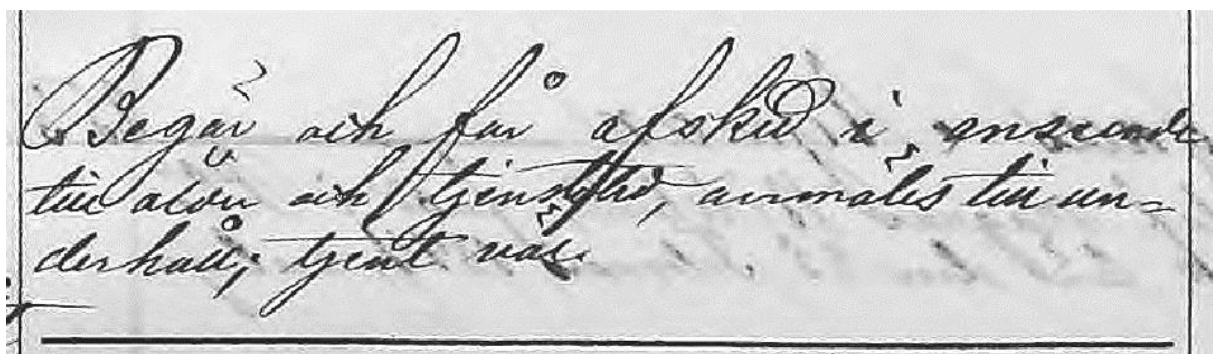 Begär och får afsked i anseende
till ålder och tjenstetid, anmäles till un-
derhåll; tjent väl.